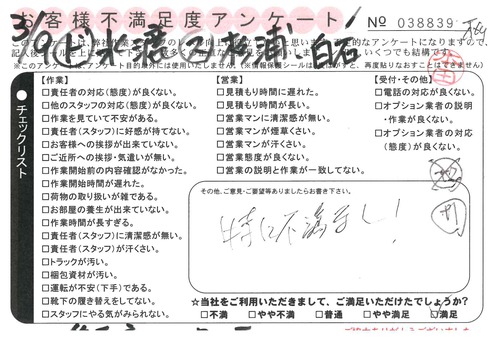 お客様不満足度アンケート
No 038839
【作業】
□責任者の対応(態度)が良くない。
□他のスタッフの対応(態度)が良くない。
□作業を見ていて不安がある。
□責任者(スタッフ)に好感が持てない。
□お客様への挨拶が出来ていない。
□ご近所への挨拶・気遣いが無い。
□作業開始前の内容確認がなかった。
□作業開始時間が遅れた。
□荷物の取り扱いが雑である。
□お部屋の養生が出来ていない。
□作業時間が長すぎる。
□責任者(スタッフ)に清潔感が無い。
□責任者(スタッフ)が汗くさい。
□トラックが汚い。
□梱包資材が汚い。
□運転が不安(下手)である。
□靴下の履き替えをしてない。
□スタッフにやる気がみられない。
【営業】
□見積もり時間に遅れた。
□見積もり時間が長い。
□営業マンに清潔感が無い。
□営業マンが煙草くさい。
□営業マンが汗くさい。
□営業態度が良くない。
□営業の説明と作業が一致してない。
【受付・その他】
□電話の対応が良くない。
□オプション業者の説明
・作業が良くない。
□オプション業者の対応
(態度)が良くない。
●チェックリスト
その他、ご意見・ご要望等ありましたらお書き下さい。
特に不満なし!
☆当社をご利用いただきまして、ご満足いただけたでしょうか?
□不満 □やや不満 □普通 □やや満足 □満足